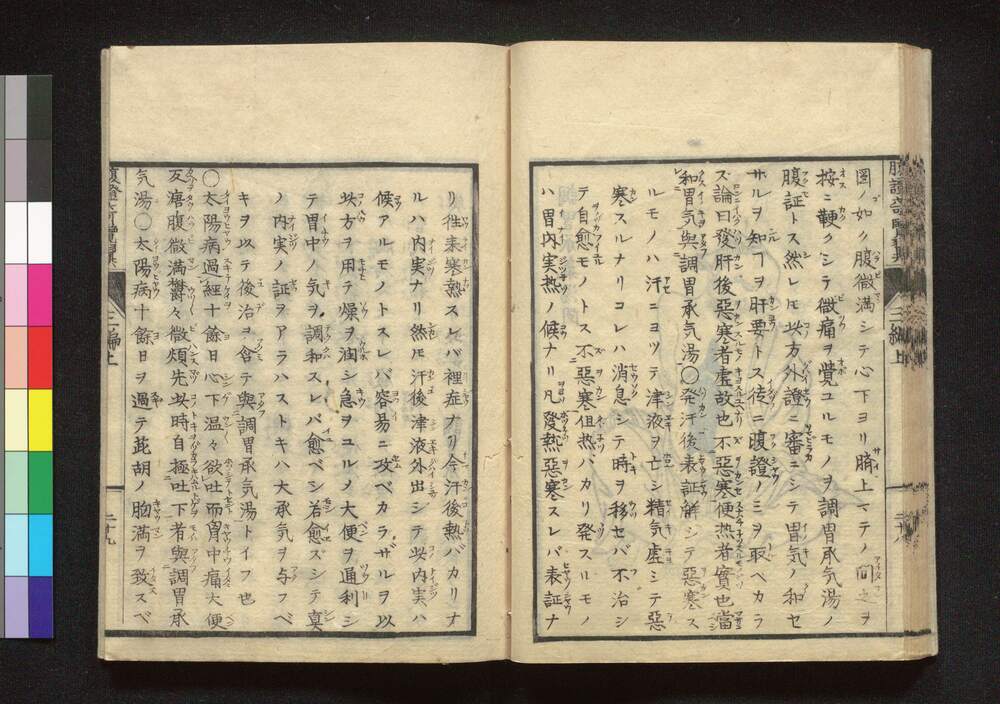 圖ノ如ク腹微滿シテ心下ヨリ臍上マテノ間之ヲ
按ニ鞕クシテ微痛ヲ覺ユルモノヲ調胃承気湯ノ
腹証トス然レ𪜈此方外證ニ審ニシテ胃気ノ和セ
サルヲ知ヿヲ肝要トス徒ニ腹證ノミヲ取ヘカラ
ス論曰發汗後惡寒者虚故也不惡寒便熱者實也當
和胃気與調胃承気湯○発汗後表証解シテ惡寒ス
ルモノハ汗ニヨツテ津液ヲ亡シ精気虚シテ惡
寒スルナリコレハ消息シテ時ヲ移セバ不治シ
テ自愈モノトス不惡寒但熱バカリ発スルモノ
ハ胃内実熱ノ候ナリ凡發熱惡寒スレバ表証ナ
三編上
リ徃来寒熱スレバ裡症ナリ今汗後熱バカリナ
ルハ内実ナリ然𪜈汗後津液外出シテ此内実ハ
候アルモノトスレバ容易ニ攻ベカラザルヲ以
此方ヲ用テ燥ヲ润シ急ヲユルメ大便ヲ通利シ
テ胃中ノ気ヲ調和スレバ愈ベシ若愈ズシテ真
ノ内実ノ証ヲアラハストキハ大承気ヲ与フベ
キヲ以テ後治ヲ含テ與調胃承気湯トイフ也
○太陽病過經十餘日心下温々欲吐而胷中痛大便
反溏腹微滿鬱々微煩先此時自極吐下者與調胃承
気湯○太陽病十餘日ヲ過テ茈胡ノ胸満ヲ致スベ
腹證奇覽翼
三編上
二十九